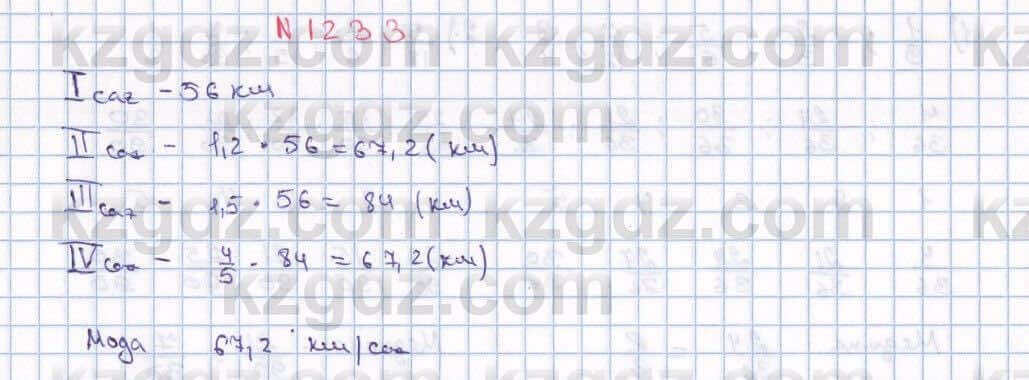 N 1233
I сағ - 56 км
II сағ - 1,2 · 56 = 67,2 (км)
III сағ - 1,5 · 56 = 84 (км)
IV сағ - 4/5 · 84 = 67,2 (км)
Мода 67,2 км/сағ
kzgdz.com
kzgdz.com
kzgdz.com
kzgdz.com